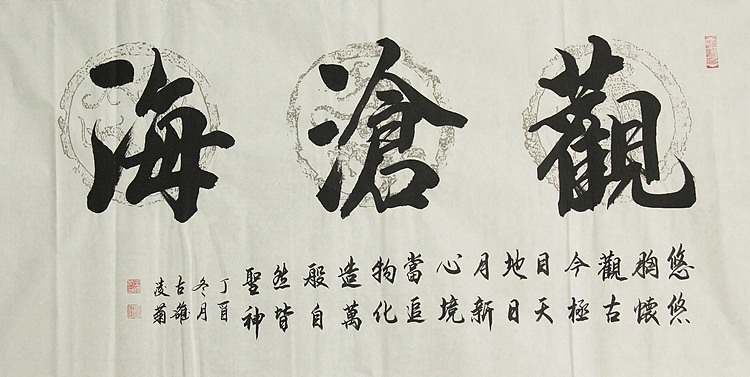 觀滄海
悠悠
胸懷
觀古
今極
目天
地日
月新
心境
當追
物化
造萬
般自
然皆
聖神
丁酉
冬月
古雄
凌菊